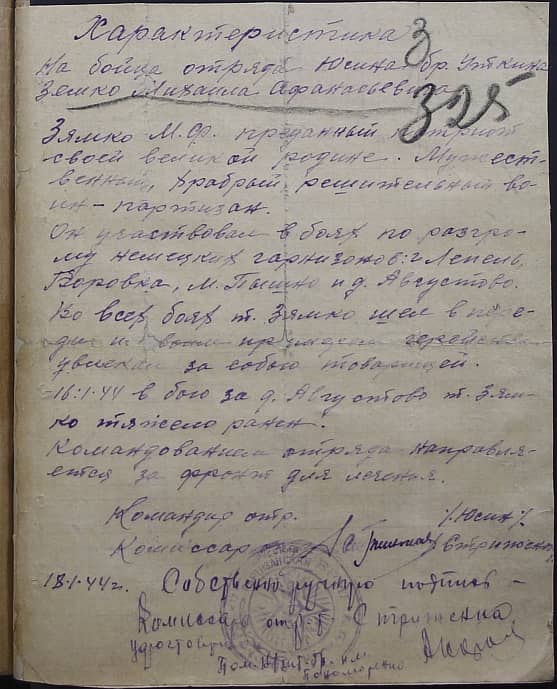 Характеристика
3
На бойца отряда Юсина бр. Уткина
Земко Михаила Афанасьевича
325
Зямко М.Ф. преданный патриот
своей великой родине. Мужест-
венный, храбрый решительный во-
ин-партизан.
Он участвовал в боях по разгро-
му немецких гарнизонов: г Лепель,
Боровка, м. Пышно и д. Августово.
Во всех боях т. Зямко шел в пере-
ди и
увлекал за собою товарищей.
16.1.44 в бою за д. Августово т. Зям-
ко тяжело ранен.
Командованием отряда направля-
ется за фронт для леченья.
Командир отр. /Юсин/.
Комиссар /Стриженк
18.1.44г. Собственноручную подпись -
Комиссара отр. Стриженка
удостоверяю
Пом.